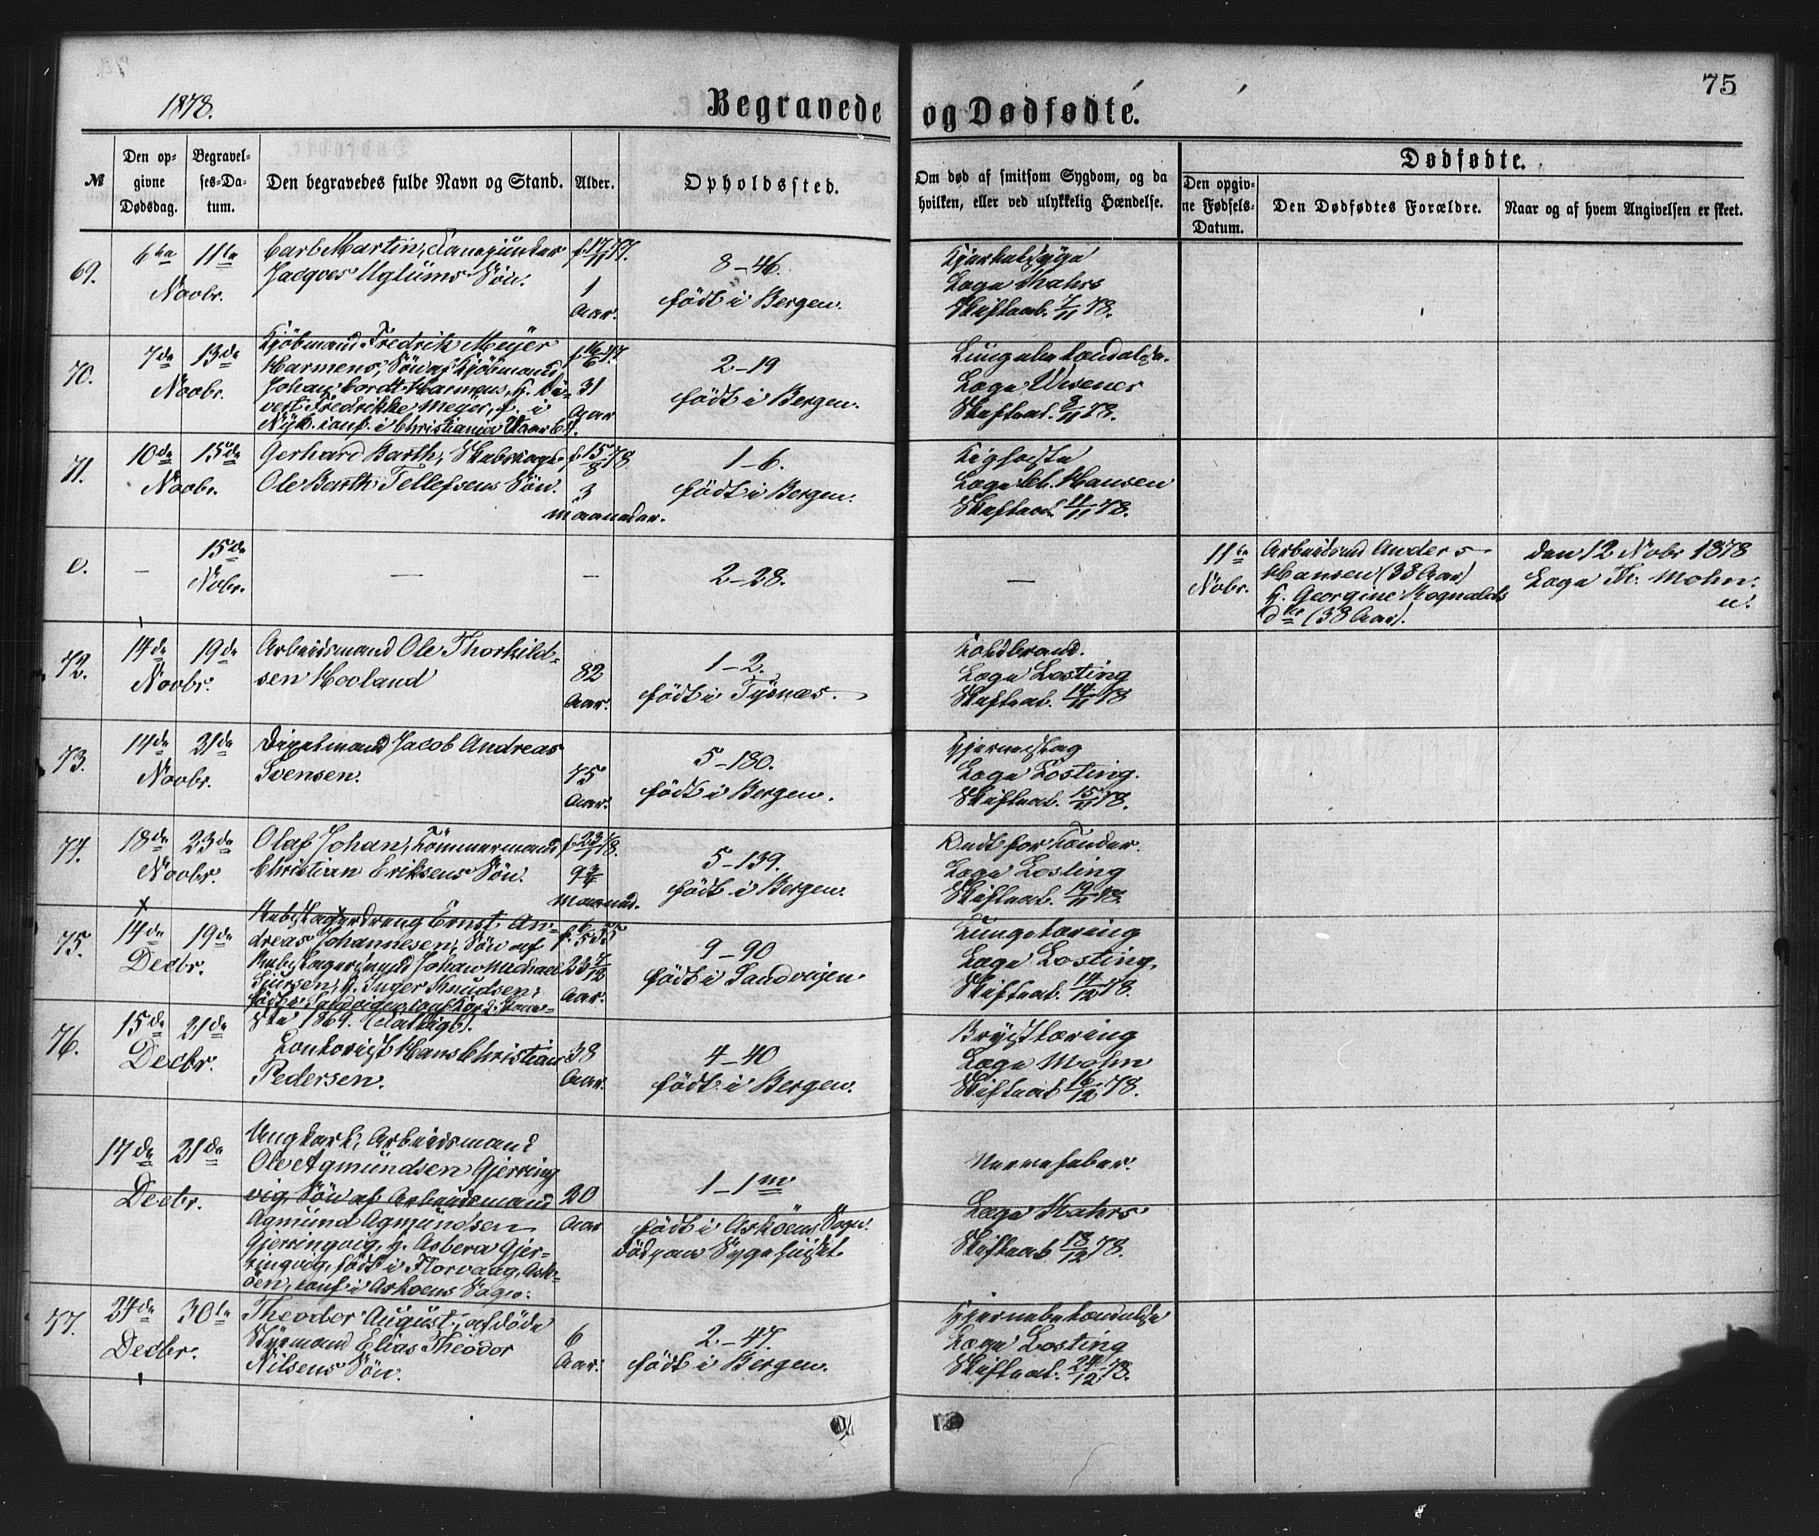 75
1878.
Begravede og Dødfødte.
№
Den opgivne Dødsdag.
Begravelses-Datum.
Den begravedes fulde Navn og Stand.
Alder.
Opholdssted.
Om død af smitsom Sygdom, og da
hvilken, eller ved ulykkelig Hændelse.
Dødfødte.
Den opgivne Fødsels-Datum.
Den Dødfødtes Forældre.
Naar og af hvem Angivelsen er skeet.
69.
6te 11te
Novbr.
Carl Martin,
Jacques Uglums Søn.
f. 17/11 77.
1
Aar.
8-46.
født i Bergen.
Læge Kahrs
Skifteat. 7/11 78.
70.
7de 13de
Novbr.
Kjøbmand Fredrik Meyer
Harmens, Søn af Kjøbmand
Johan Cordt Harmens,
Fredrikke Meyer, f. i
conf. i Christiania
f. 16/6 47
31
Aar
2-19
født i Bergen.
Lungebetændelse.
Læge Wesenes
Skifteat. 8/11 78.
71.
10de 15de
Novbr.
Gerhard Barth,
Ole Barth Tellefsens Søn.
f. 15/8 78
3
maaneder.
1-6.
født i Bergen.
Kighoste
Læge Hansen
Skifteat. 11/11 78.
c.
—
15de
Nobr.
—
—
2-28.
—
11te
Nobr.
Arbeidsmd Anders
Hansen (38 Aar)
H. Georgine Rognalds
dtr (38 Aar).
den 12 Nobr 1878
Læge Th. Mohn.
72.
14de 19de
Novbr.
Arbeidsmand Ole Thorkild-
sen Hovland
82
Aar.
1-2.
født i Tysnæs.
Koldbrand.
Læge Losting
Skifteat. 14/11 78
73.
14de 21de
Novbr.
Jacob Andreas
Svensen.
75
Aar.
5-180.
født i Bergen.
Hjerneslag
Læge Losting.
Skifteat. 15/11 78.
74.
18de 23de
Novbr.
Olaf Johan, Tömmermand
Christian Eriksens Søn.
f. 23/1 78.
9 3/4
Maaned.
5-139.
født i Bergen.
Ondt for Tænder.
Læge Losting
Skifteat. 19/11 78.
75.
14de 19de
Decbr.
Ernst An-
dreas Johannesen, Søn af
Johan Michael
H. Inger Knudsen,
1869.
f. 6/5 55
23 7/12
Aar.
9-90
født i Sandvigen.
Lungetæring
Læge Losting,
Skifteat. 14/12 78.
76.
15de 21de
Decbr.
Kontorist Hans Christian
Pedersen.
38
Aar.
4-40
født i Bergen.
Brysttæring
Læge Mohn
Skifteat 16/12 78.
17de 21de
Decbr.
Ungkarl, Arbeidsmand
Ole Agmundsen Gjerring
vig, Søn af Arbeidsmand
Agmund Agmundsen
Gjerringvig, H. Asbera Gjer-
ringvig, født i Florvaag, Ask-
öen, conf. i Asköens Sogn.
20
Aar
1-1 m
født i Asköens Sogn.
död paa Sygehuset.
Nervefeber.
Læge Kahrs
Skifteat. 18/12 78.
77.
24de 30te
Decbr.
Theodor August, afdøde
Styrmand Elias Theodor
Nilsens Søn.
6
Aar.
2-47.
født i Bergen.
Hjernebetændelse
Læge Losting
Skifteat. 24/12 78.